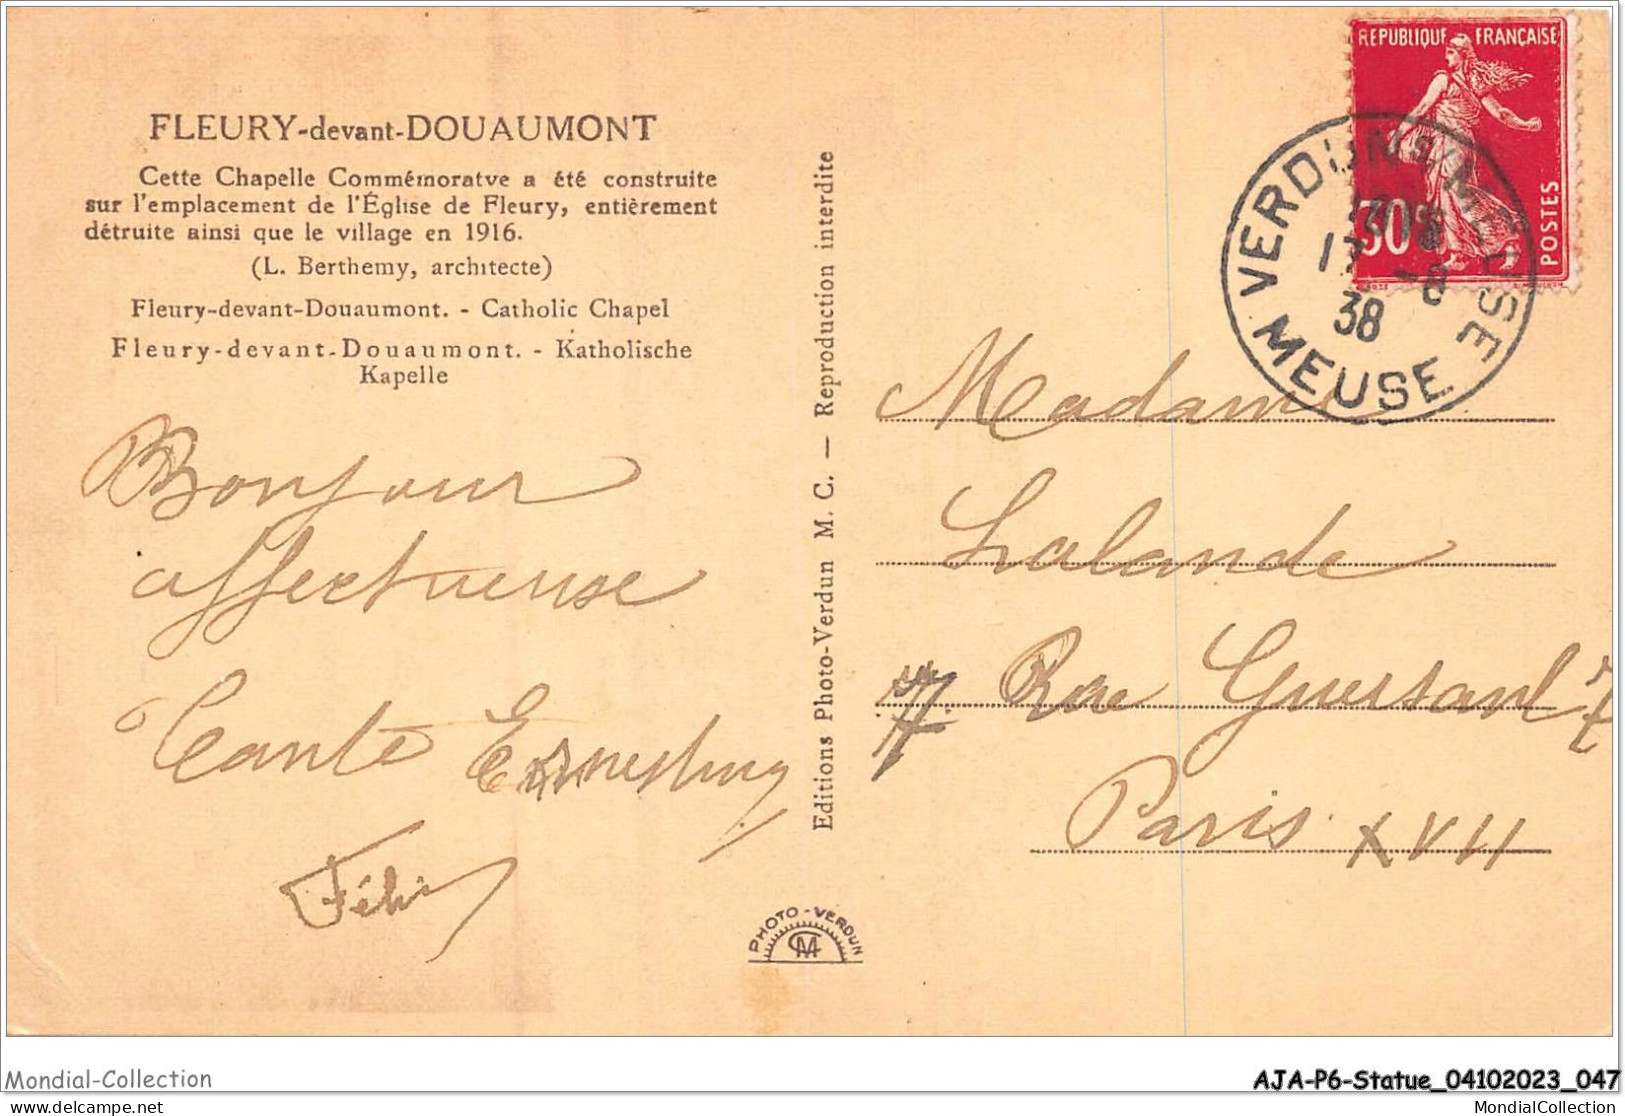 REPUBLIQUE FRANÇAISE
30c
POSTES
VERDUN S/MEUSE
17 -8
38
MEUSE
FLEURY-devant-DOUAUMONT
Cette Chapelle Commémoratve a été construite
sur l'emplacement de l'Église de Fleury, entièrement
détruite ainsi que le village en 1916.
(L. Berthemy, architecte)
Fleury-devant-Douaumont. - Catholic Chapel
Fleury-devant-Douaumont. - Katholische
Kapelle
Bonjour
affectueuse
Tante
Editions Photo-Verdun M. C. — Reproduction interdite
Madame
Lalande
7 Rue Guersant 7
Paris XVII
PHOTO-VERDUN
CM
Mondial-Collection
AJA-P6-Statue_04102023_047
delcampe.net
MondialCollection